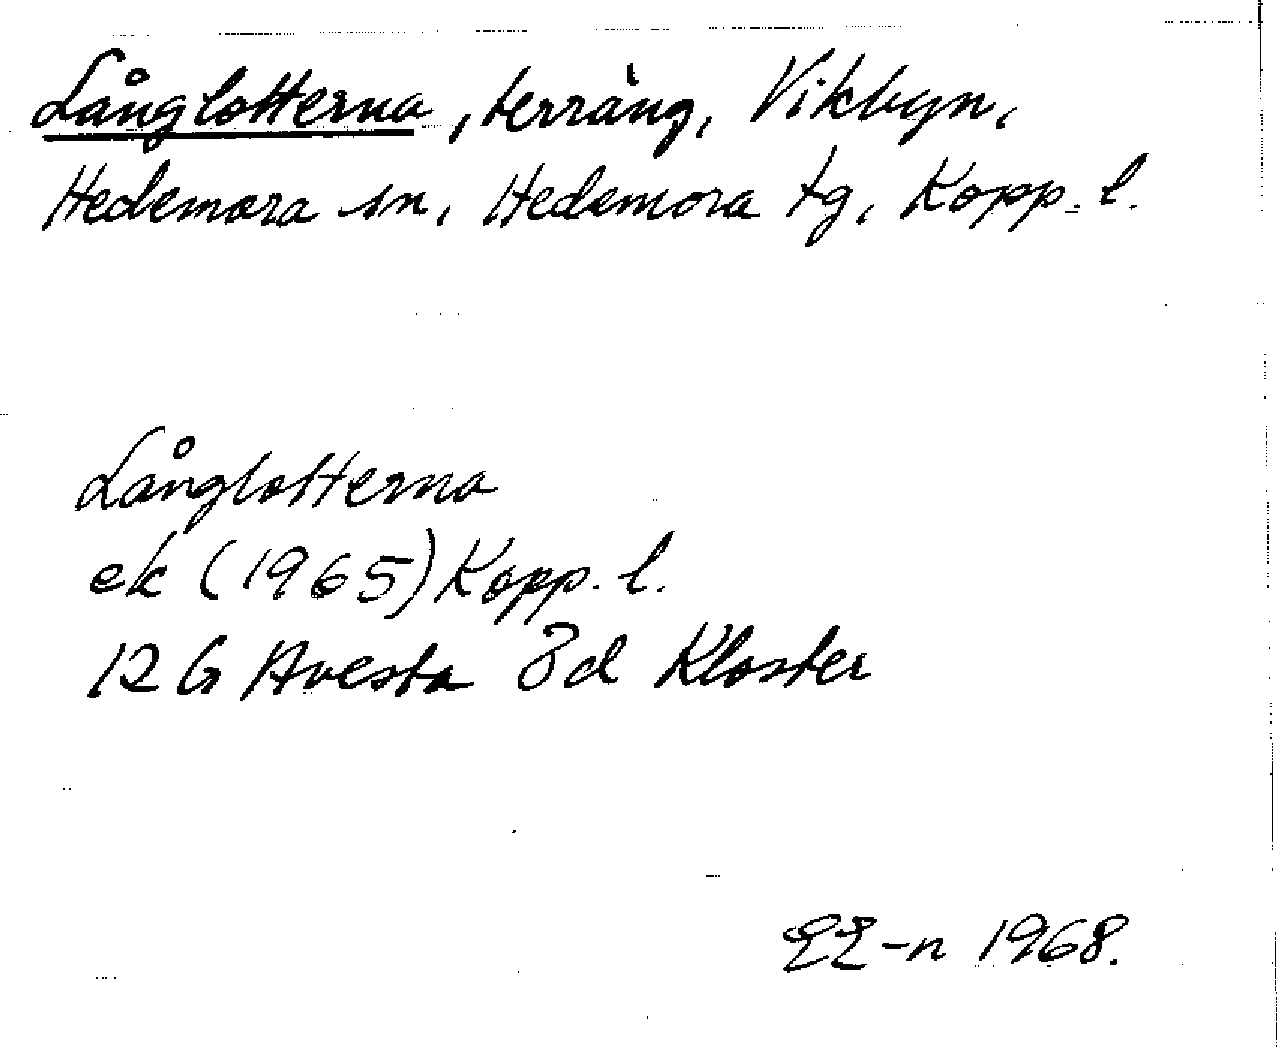 Långlotterna, terräng, Vikbyn,
Hedemora sn, Hedemora tg, Kopp. l.
Långlotterna
ek (1965) Kopp. l.
12 G Avesta 8d Kloster
EE-n 1968.